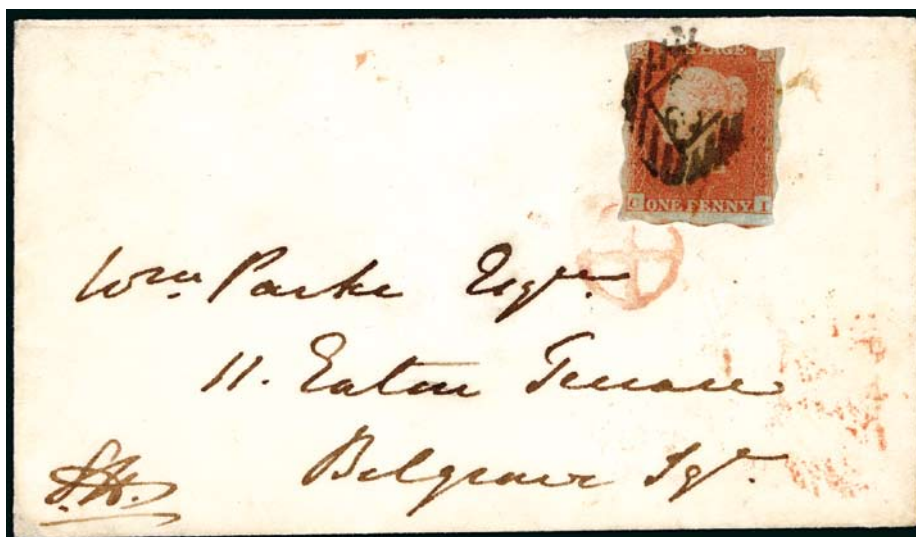 POSTAGE
C ONE PENNY I
Wm. Parke Esqre.
11. Eaton Terrace
Belgrave Sqr.